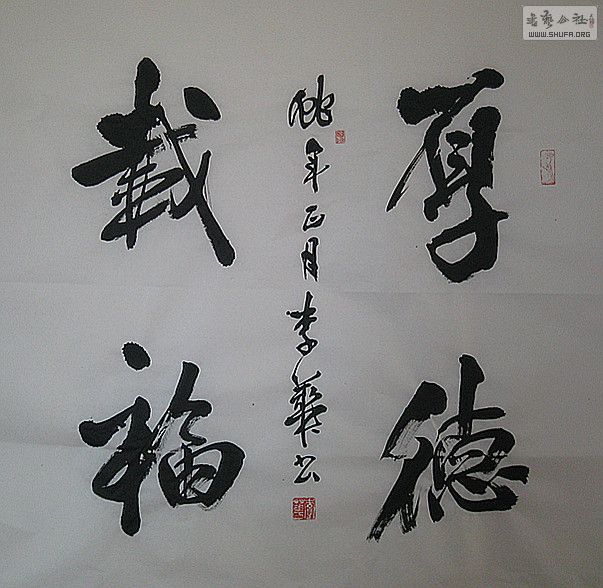 厚德
年正月李華书
載福
書藝公社
WWW.SHUFA.ORG